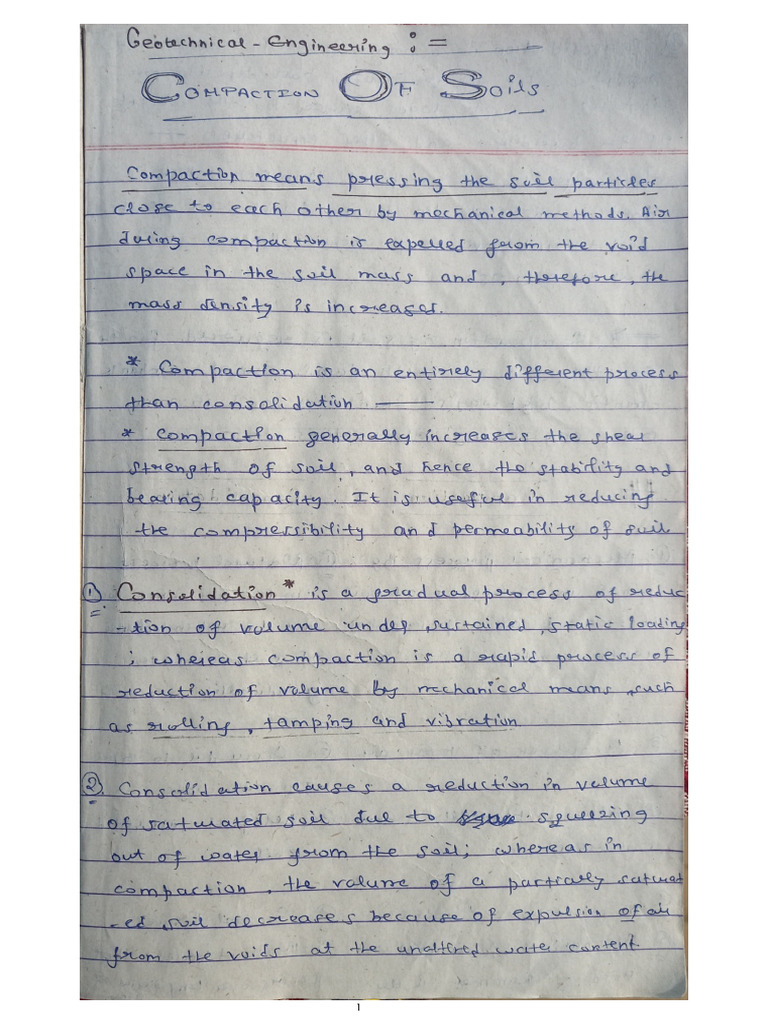 Geotechnical - Engineering : =
COMPACTION OF SOILS
Compaction means pressing the soil particles
close to each other by mechanical methods. Air
during compaction is expelled from the void
space in the soil mass and, therefore, the
mass density is increases.
* Compaction is an entirely different process
than consolidation ——
* compaction generally increases the shear
strength of soil, and hence the stability and
bearing capacity. It is useful in reducing
the compressibility and permeability of soil
① Consolidation * is a gradual process of reduc
-tion of volume under sustained, static loading
; whereas compaction is a rapid process of
reduction of volume by mechanical means, such
as rolling, tamping and vibration
② Consolidation causes a reduction in volume
of saturated soil due to squeezing
out of water from the soil; whereas in
compaction, the volume of a partially saturat
-ed soil decreases because of expulsion of air
from the voids at the unaltired water content.
1